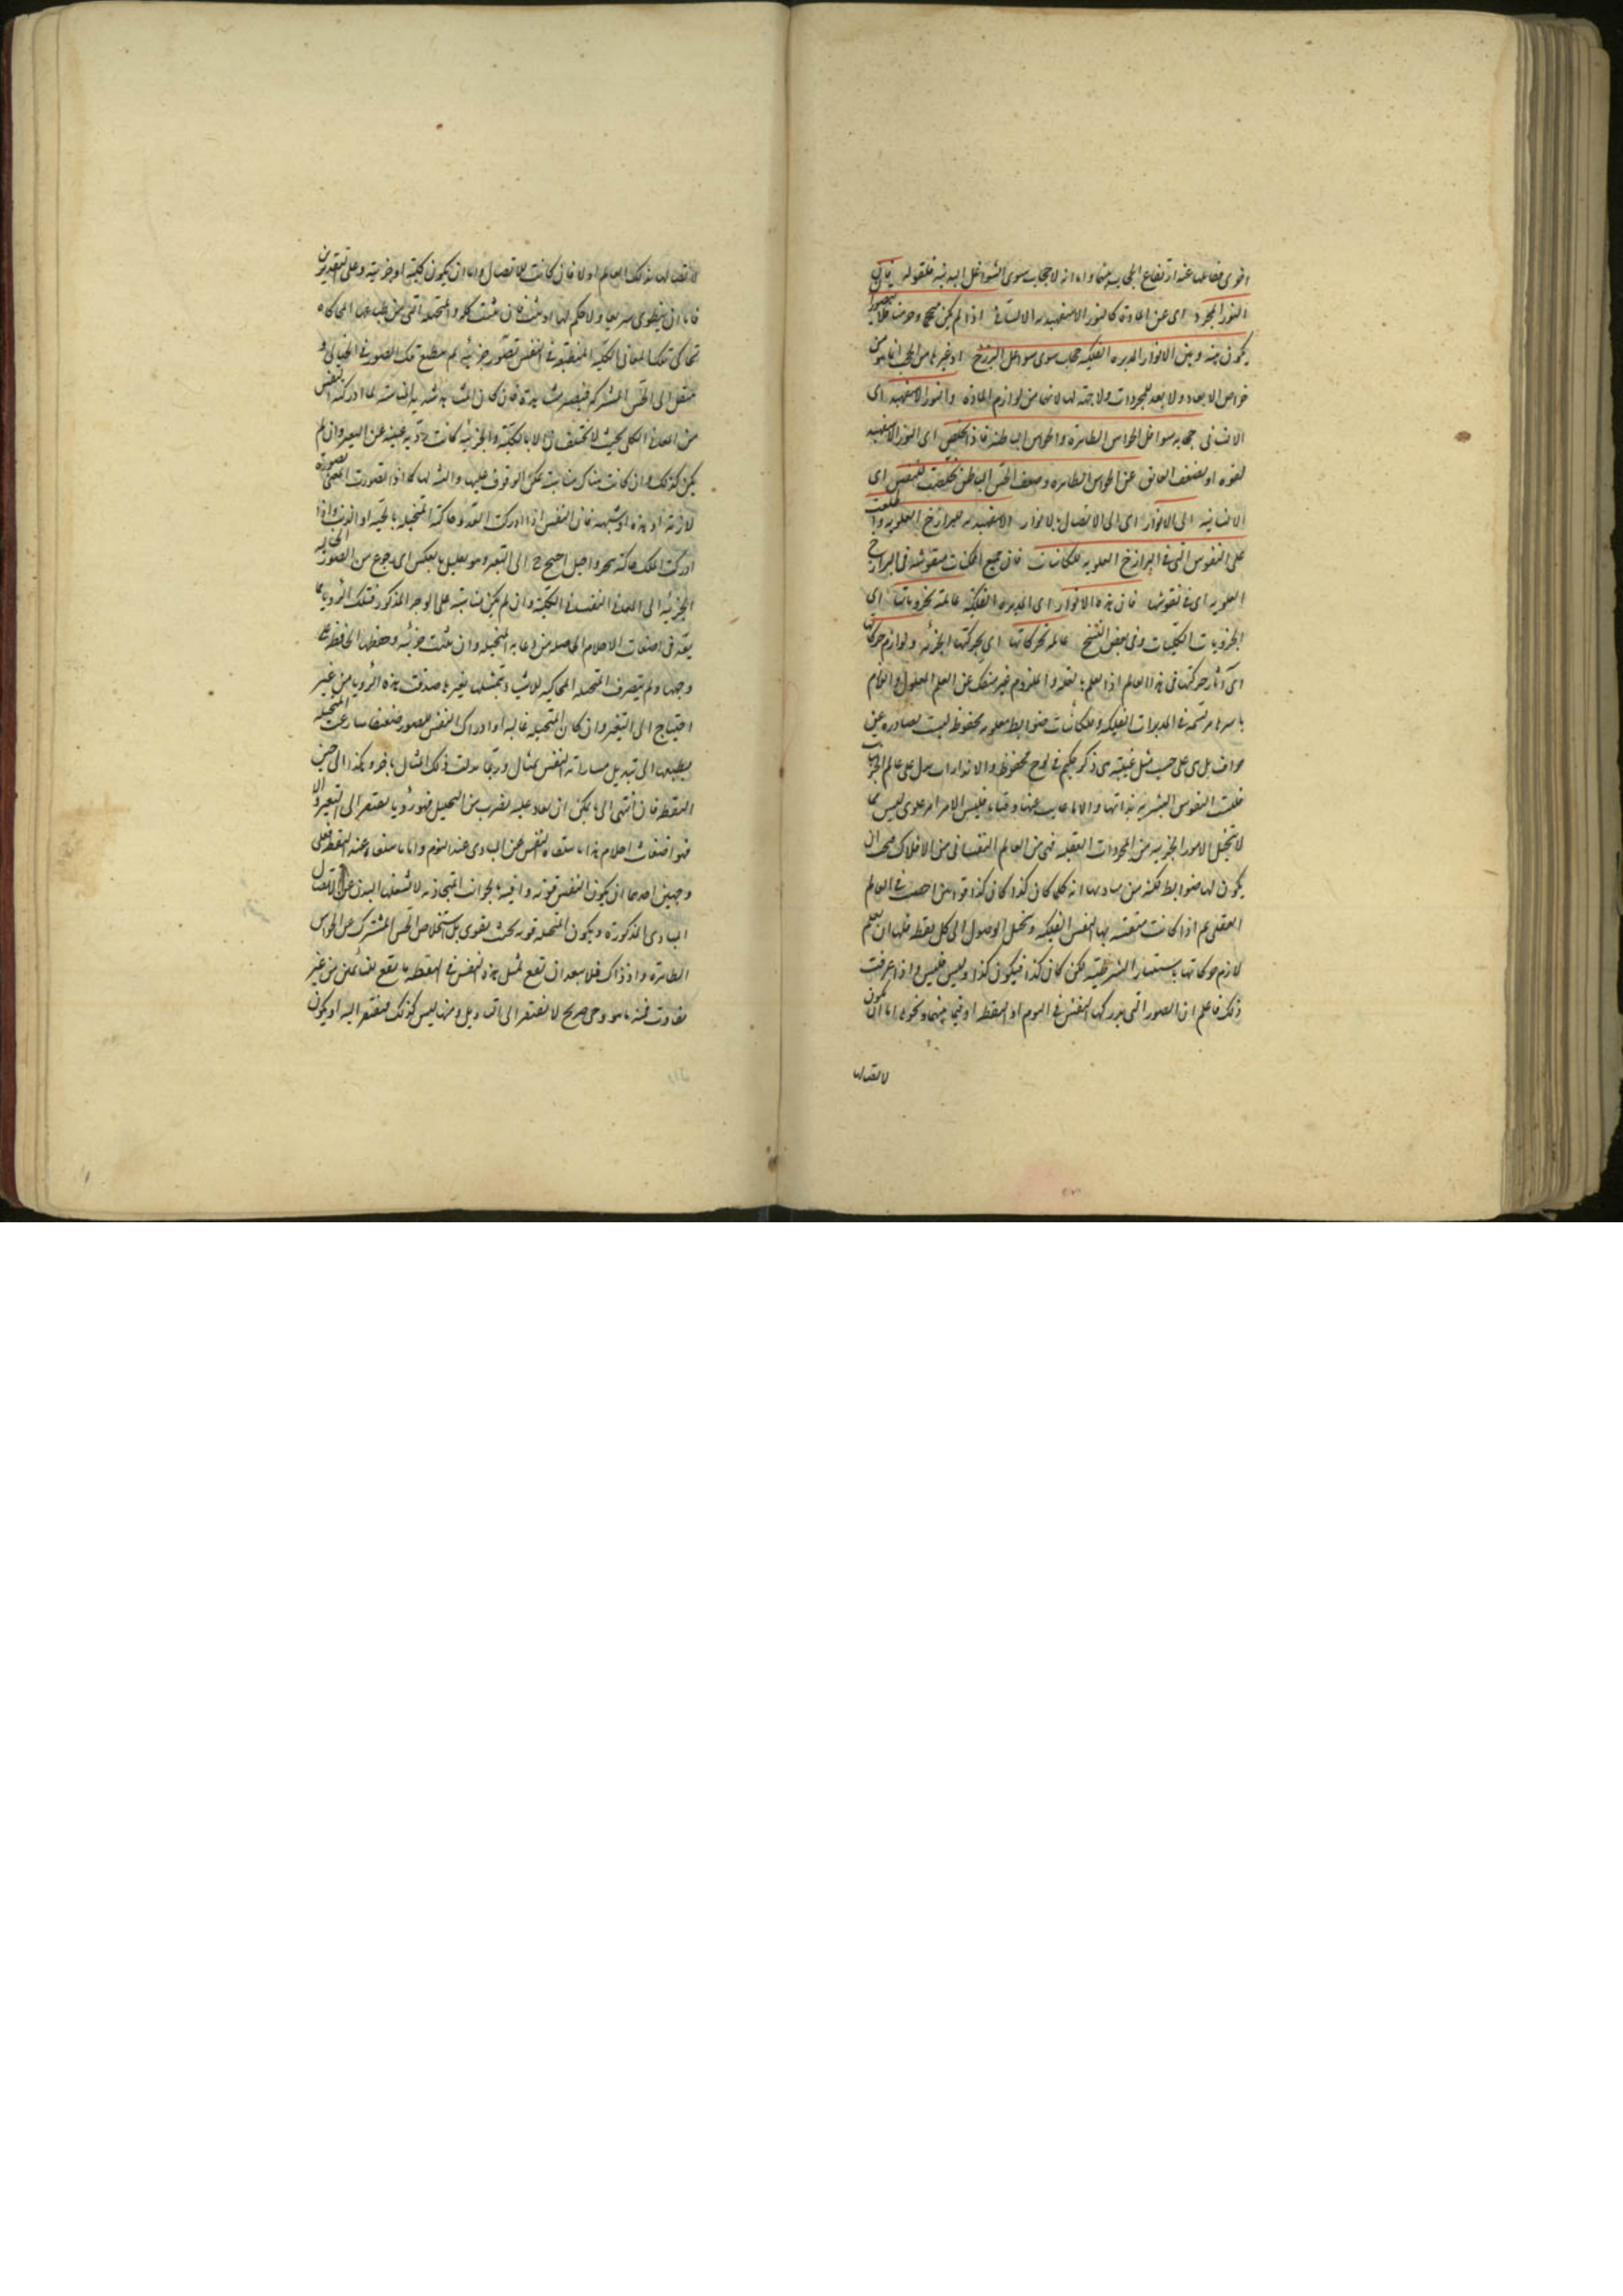 اخرى فصاعدا عند ارتفاع الحجاب بينهما واما انه لا حجاب سوى الشواغل البدنية فلقوله فان
النور المجرد اى عن المادة كالنور الاسفهبد الانسانى اذا لم يكن حجما
يكون بينه وبين الانوار المدبرة الفلكية حجاب سوى شواغل البرزخ او غيرها من الحجب
خواص الابعاد ولا بعد للمجردات ولا جهة لها لانهما من لوازم المادة والنور الاسفهبد اى
الانسانى حجابه شواغل الحواس الظاهرة والحواس الباطنة فاذا تخلص اى النور الاسفهبد
لقوة او لضعف العائق عن الحواس الظاهرة وضعف الحس الباطن تخلصت النفس اى
الانسانية الى الانوار اى الى الاتصال بالانوار الاسفهبدية للبرازخ العلوية واطلعت
على النقوش التى فى البرازخ العلوية للكائنات فان جميع الكائنات منقوشة فى البرازخ
العلوية اى فى نفوسها فان هذه الانوار اى المدبرة الفلكية عالمة بجزوياتها اى
الجزويات الكليات وفى بعض النسخ عالمة بحركاتها اى بحركتها الجزئية ولوازم حركاتها
اى آثار حركتها فى هذا العالم اذ العلم بالعلة والملزوم غير منفك عن العلم المعلول واللازم
باسرها مرتسمة فى المدبرات الفلكية وللكائنات ضوابط معلومة محفوظة ليست بصادرة عن
جزاف بل هى على حسب مثل غيبية هى ذكر حكيم فى لوح محفوظ
فليست النفوس البشرية بذاتها
لا تتخيل الامور الجزئية من المجردات العقلية فهى من العالم النفسانى من الافلاك فيجب ان
يكون لها ضوابط كلية من مباديها انه كلما كان كذا كان كذا
العقلى ثم اذا كانت منتقشة بها النفس الفلكية وتتخيل الوصول الى كل نقطة فلها ان تعلم
لازم حركاتها باستثناء الشرطية لكن كان كذا فيكون كذا وليس فليس واذا عرفت
ذلك فاعلم ان الصور التى تدركها النفس فى النوم او اليقظة او فيما بينهما ونحوه اما ان تكون
لاتصالها
لاتصالها بذلك العالم او لا فان كانت للاتصال فاما ان يكون كلية او جزئية وعلى التقديرين
فاما ان ينطوى سريعا ولا حكم لها او يثبت فان ثبتت كلية والمتخيلة التى من طباعها المحاكاة
تحاكى تلك المعانى الكلية المنطبعة فى النفس بصور جزئية ثم تنطبع تلك الصور فى الخيال و
تنتقل الى الحس المشترك فتصير مشاهدة فان كان المشاهد شديد المناسبة لما ادركته النفس
من المعنى الكلى بحيث لا تختلفان الا بالكلية والجزئية كانت الرؤيا غنية عن التعبير وان لم
يكن كذلك فان كانت هناك مناسبة يمكن الوقوف عليها والتنبه لها كما اذا تصورت المعنى بصورة
لازمة او ضده او شبيهه فان النفس اذا ادركت العدو حاكته المتخيلة بالحية او الذئب واذا
ادركت الملك حاكته ببحر او جبل احتيج ح الى التعبير وهو تحليل بالعكس اى رجوع من الصور الخيالية
الجزئية الى المعنى النفسانية الكلية وان لم يكن مناسبة على الوجه المذكور فتلك الرؤيا مما
يعد فى اضغاث الاحلام الحاصلة من دعابة المتخيلة وان ثبتت جزئية وحفظها الحافظة على
وجهها ولم تتصرف المتخيلة المحاكية للاشياء بتمثيلها بغيرها صدقت هذه الرؤيا من غير
احتياج الى التعبير وان كان المتخيلة غالبة او ادراك النفس للصور ضعيفا سارعت المتخيلة
بطبعها الى تبديل ما راته النفس بمثال وربما بدلت ذلك المثال بآخر وهكذا الى حين
اليقظة فان انتهى الى ما يمكن ان يعاد عليه بضرب من التحليل فهو رؤيا يفتقر الى التعبير والا
فهو اضغاث احلام هذا ما تتلقاه النفس عن المبادى عند النوم واما ما تتلقاه عند اليقظة فعلى
وجهين احدهما ان يكون النفس قوية وافية بالجوانب المتجاذبة لا يشغلها البدن عن الاتصال
بالمبادى المذكورة ويكون المتخيلة قوية بحيث يقوى على استخلاص الحس المشترك عن الحواس
الظاهرة واذ ذاك فلا يبعد ان يقع لمثل هذه النفس فى اليقظة ما يقع للنائمين من غير
تفاوت فمنه ما هو وحى صريح لا يفتقر الى التاويل ومنها ليس كذلك فيفتقر اليه او يكون